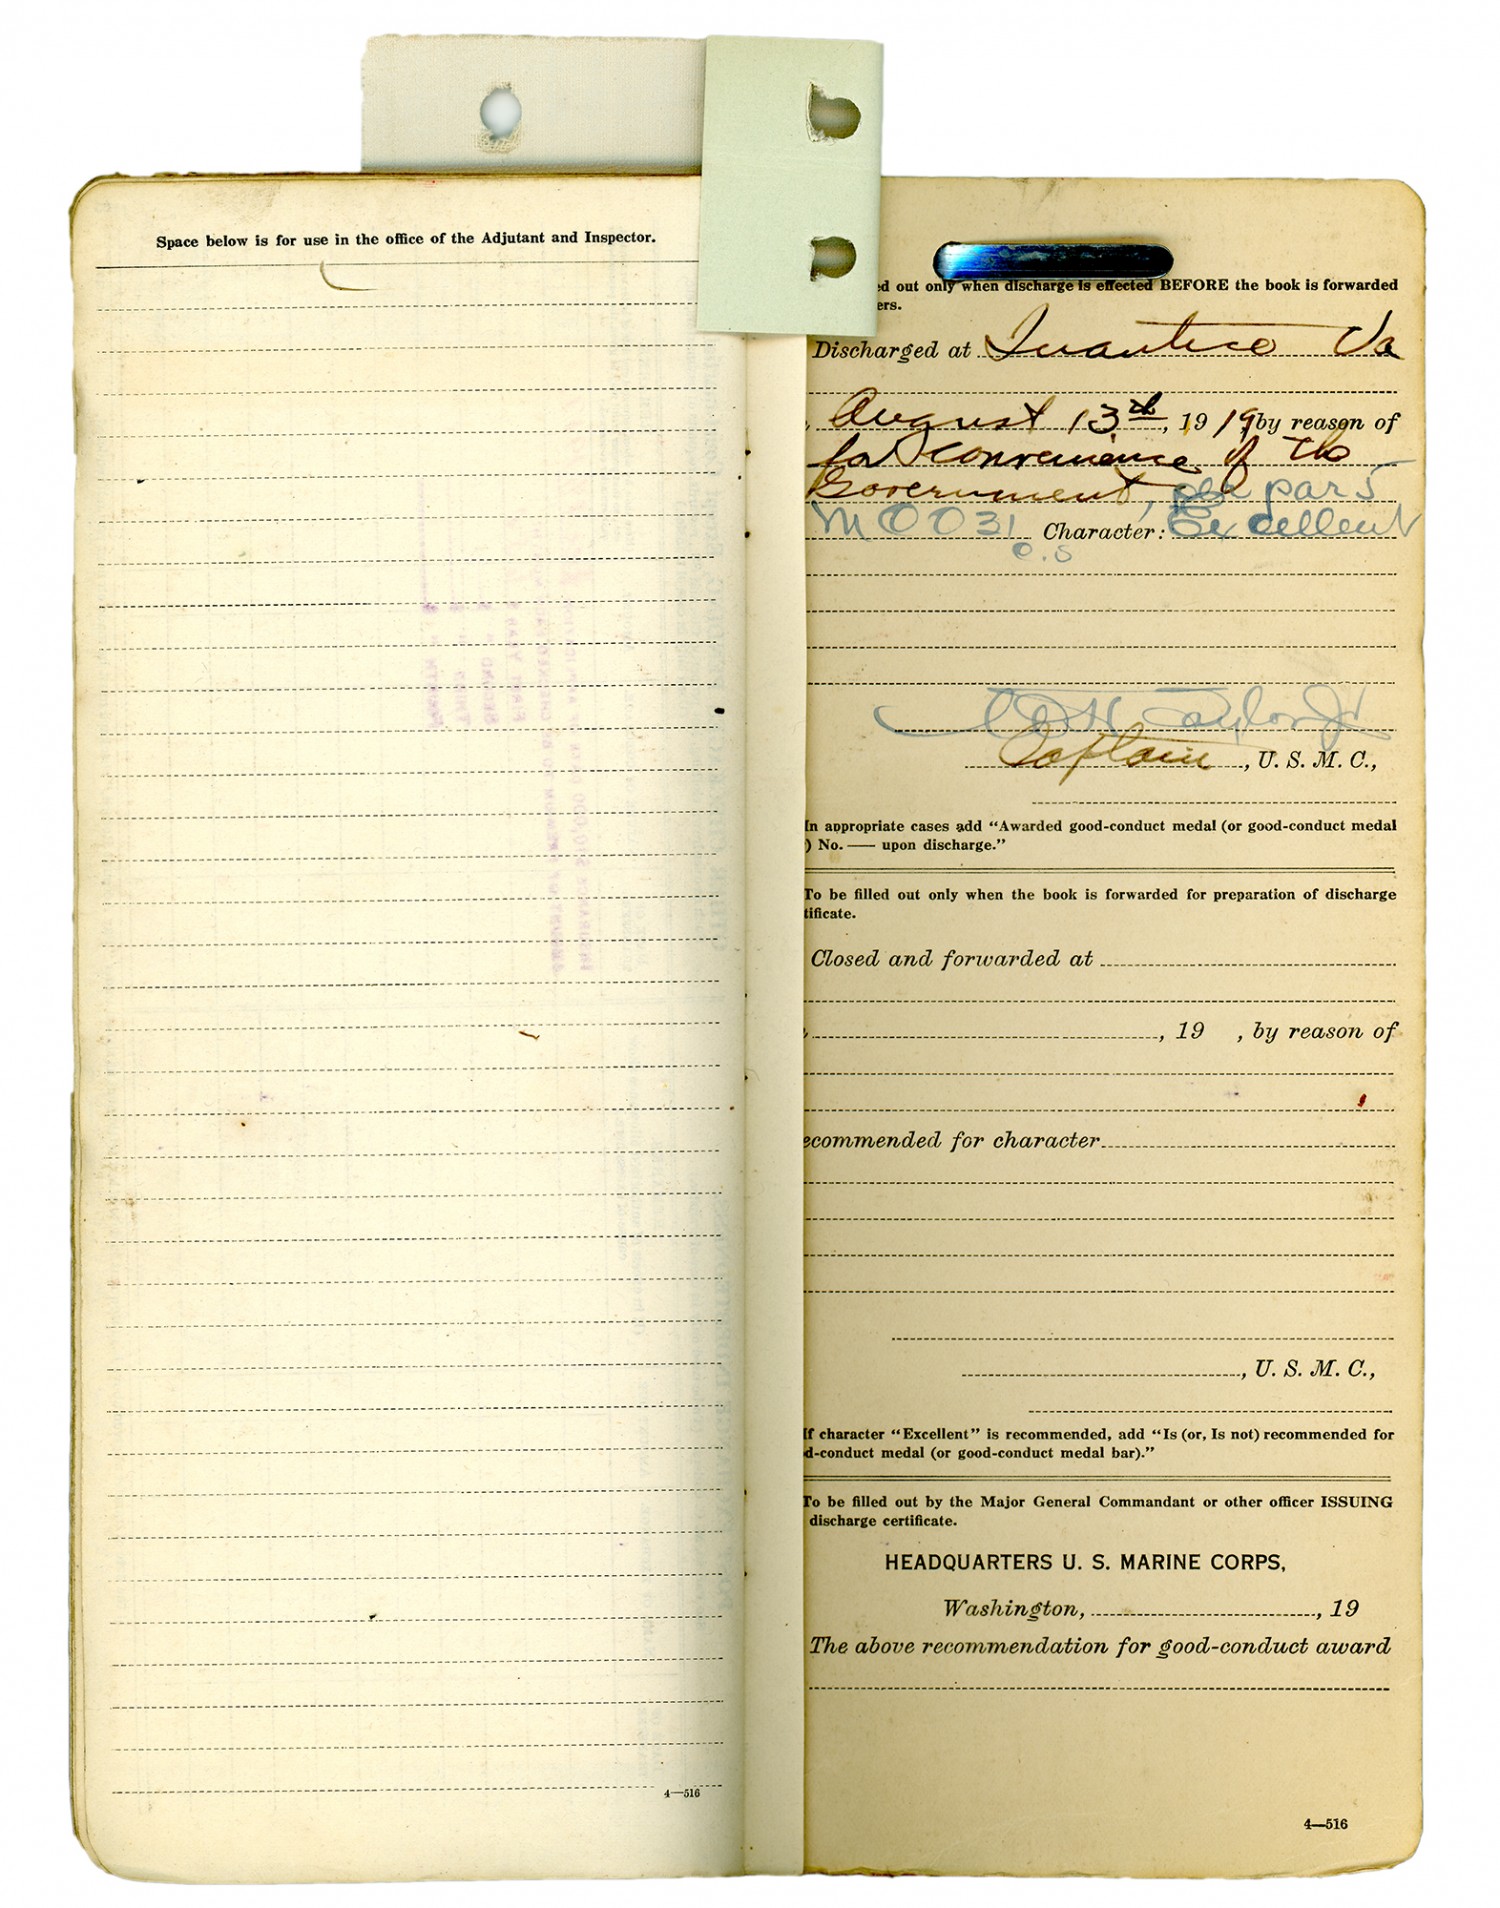 Space below is for use in the office of the Adjutant and Inspector.
4—516
ed out only when discharge is effected BEFORE the book is forwarded
ers.
Discharged at Quantico Va
August 13th, 1919, by reason of
for convenience of the
Government, per par 5
M O O 31 Character: Excellent
e.s
Taylor Jr
Captain, U. S. M. C.,
In appropriate cases add “Awarded good-conduct medal (or good-conduct medal
) No. —— upon discharge.”
To be filled out only when the book is forwarded for preparation of discharge
tificate.
Closed and forwarded at
, 19 , by reason of
ecommended for character
, U. S. M. C.,
If character “Excellent” is recommended, add “Is (or, Is not) recommended for
d-conduct medal (or good-conduct medal bar).”
To be filled out by the Major General Commandant or other officer ISSUING
discharge certificate.
HEADQUARTERS U. S. MARINE CORPS,
Washington, , 19
The above recommendation for good-conduct award
4—516